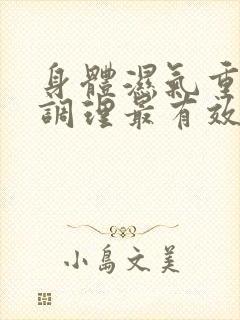 身體濕氣重
調理最有效
小島文美